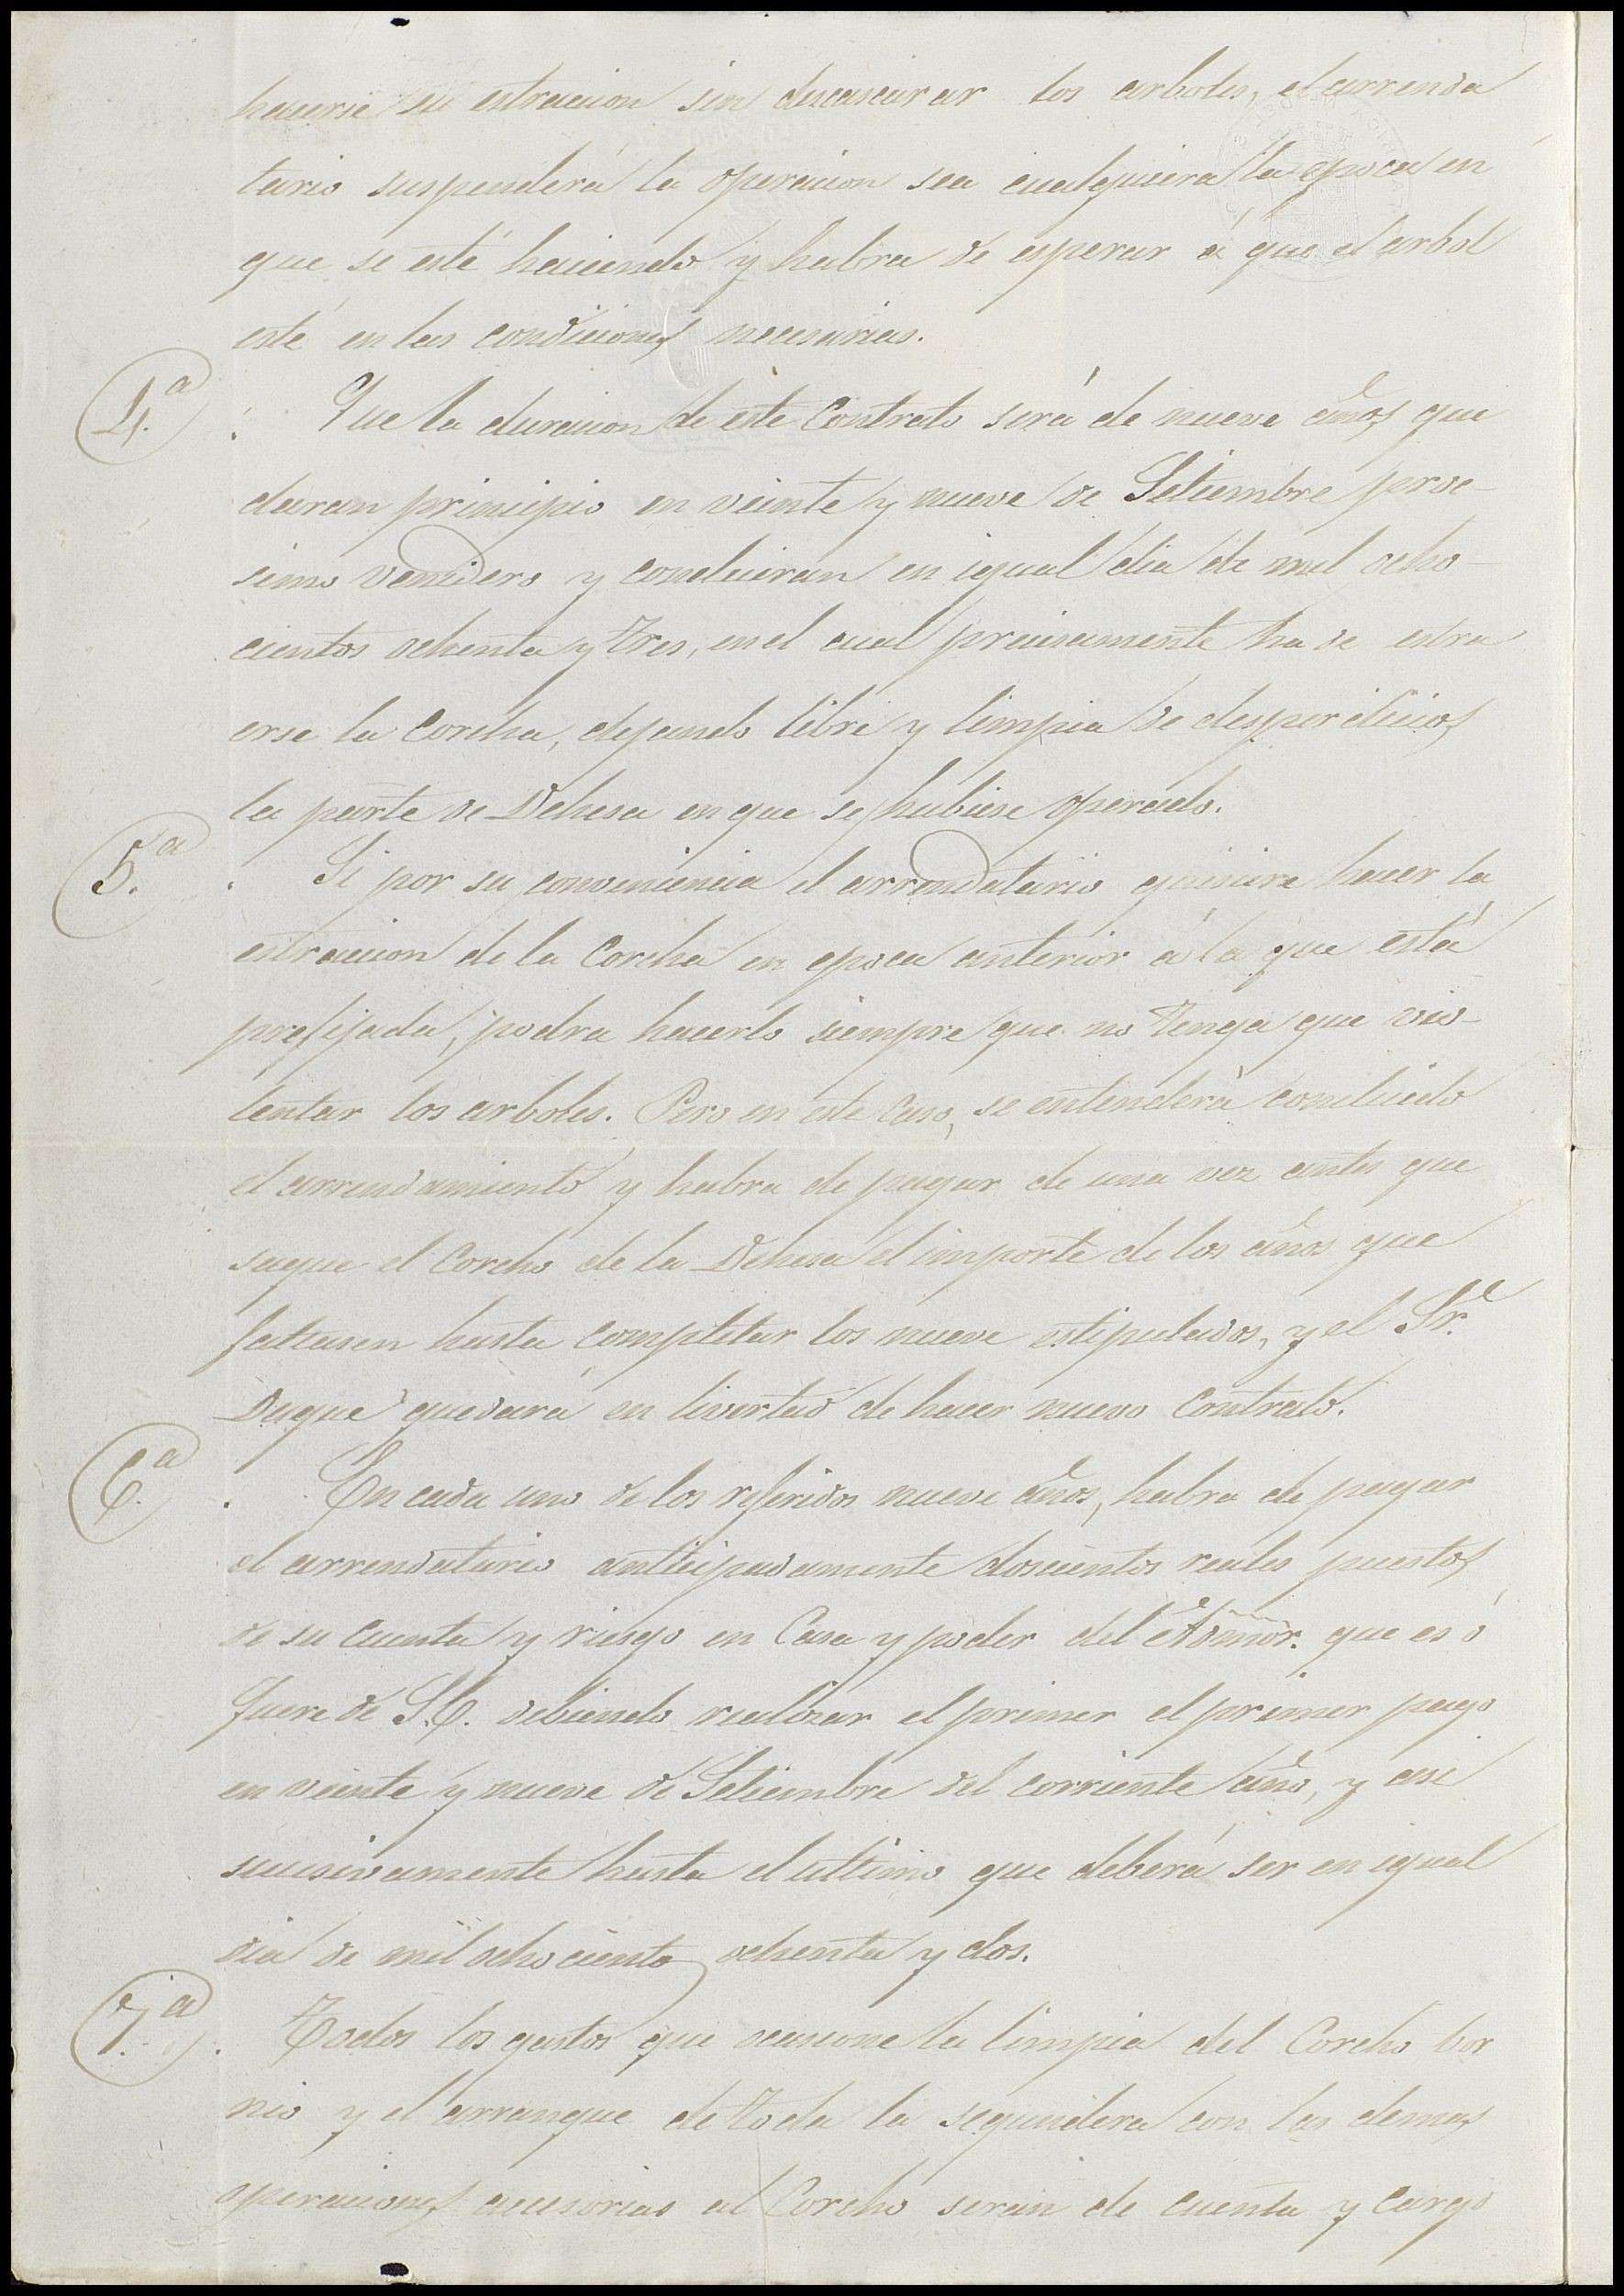 hacerse su estraccion sin descascarar los arboles, el arrenda
tario suspenderá la operacion sea cualquiera la epoca en
que se esté haciendo y habra de esperar á que el arbol
esté en las condiciones necesarias.
4.ª Que la duracion de este Contrato será de nueve años que
daran principio en veinte y nueve de Setiembre proc-
simo venidero y concluiran en igual dia de mil ocho-
cientos ochenta y tres, en el cual precisamente ha de estra
erse la Corcha, dejando libre y limpia de desperdicios
la parte de Dehesa en que se hubiese operado.
5.ª Si por su conveniencia el arrendatario quisiere hacer la
estraccion de la Corcha en epoca anterior á la que está
prefijada, podra hacerlo siempre que no tenga que vio-
lentar los arboles. Pero en este caso, se entenderá concluido
el arrendamiento y habra de pagar de una vez antes que
saque el Corcho de la Dehesa el importe de los años que
faltasen hasta completar los nueve estipulados, y el Sr.
Duque quedará en livertad de hacer nuevo Contrato.
6.ª En cada uno de los referidos nueve años, habra de pagar
el arrendatario anticipadamente doscientos reales puestos
de su cuenta y riesgo en Casa y poder del Admor. que es ó
fuere de S.E. debiendo realizar el primer el primer pago
en veinte y nueve de Setiembre del corriente año, y asi
sucesivamente hasta el ultimo que deberá ser en igual
dia de mil ochociento ochenta y dos.
7.ª Todos los gastos que ocasione la limpia del Corcho bor
nio y el arranque de toda la segundera con las demas
operaciones accesorias al Corcho serán de cuenta y cargo